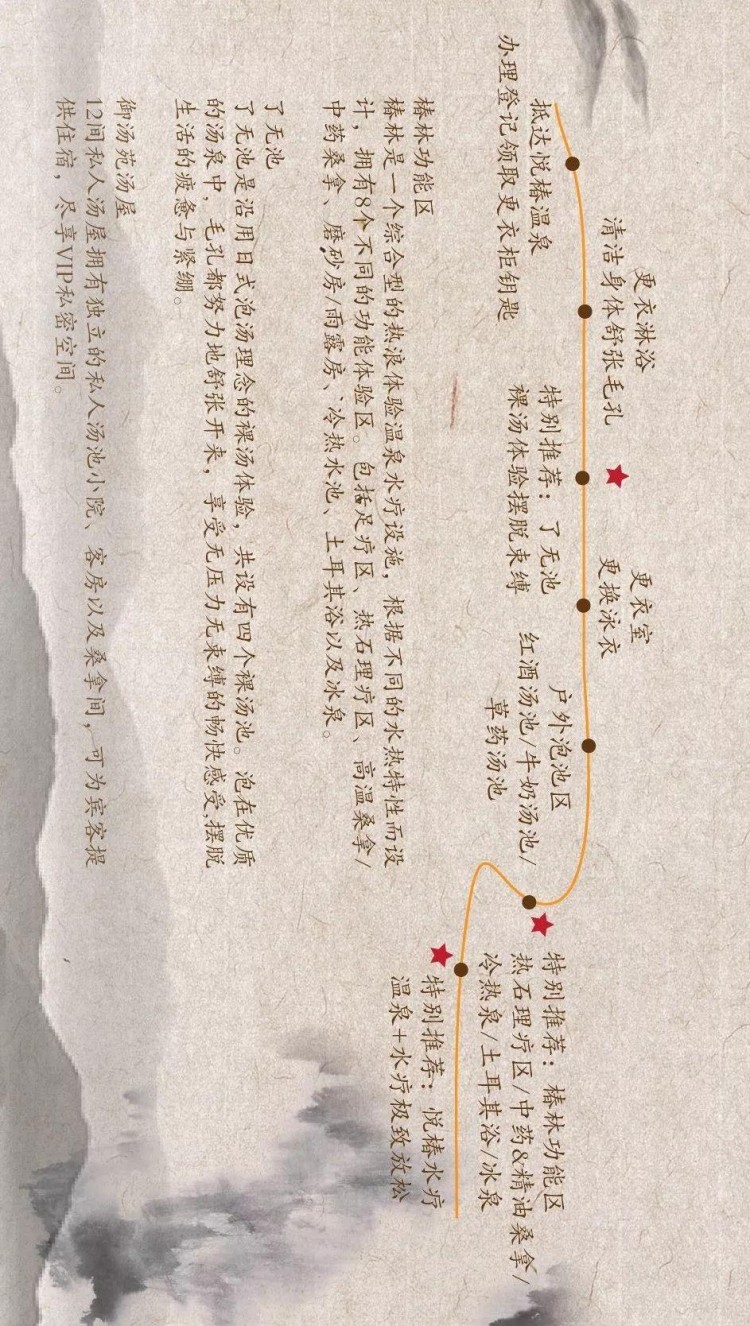 抵达悦椿温泉
办理登记领取更衣柜钥匙
更衣淋浴
清洁身体舒张毛孔
特别推荐：了无池
裸汤体验摆脱束缚
更衣室
更换泳衣
户外泡池区
红酒汤池/牛奶汤池/
草药汤池
特别推荐：椿林功能区
热石理疗区/中药&精油桑拿/
冷热泉/土耳其浴/冰泉
特别推荐：悦椿水疗
温泉+水疗极致放松
椿林功能区
椿林是一个综合型的热浪体验温泉水疗设施，根据不同的水热特性而设
计，拥有8个不同的功能体验区。包括足疗区、热石理疗区、高温桑拿/
中药桑拿、磨砂房/雨露房、冷热水池、土耳其浴以及冰泉。
了无池
了无池是沿用日式泡汤理念的裸汤体验，共设有四个裸汤池。泡在优质
的汤泉中，毛孔都努力地舒张开来，享受无压力无束缚的畅快感受,摆脱
生活的疲惫与紧绷。
御汤苑汤屋
12间私人汤屋拥有独立的私人汤池小院、客房以及桑拿间，可为宾客提
供住宿，尽享VIP私密空间。